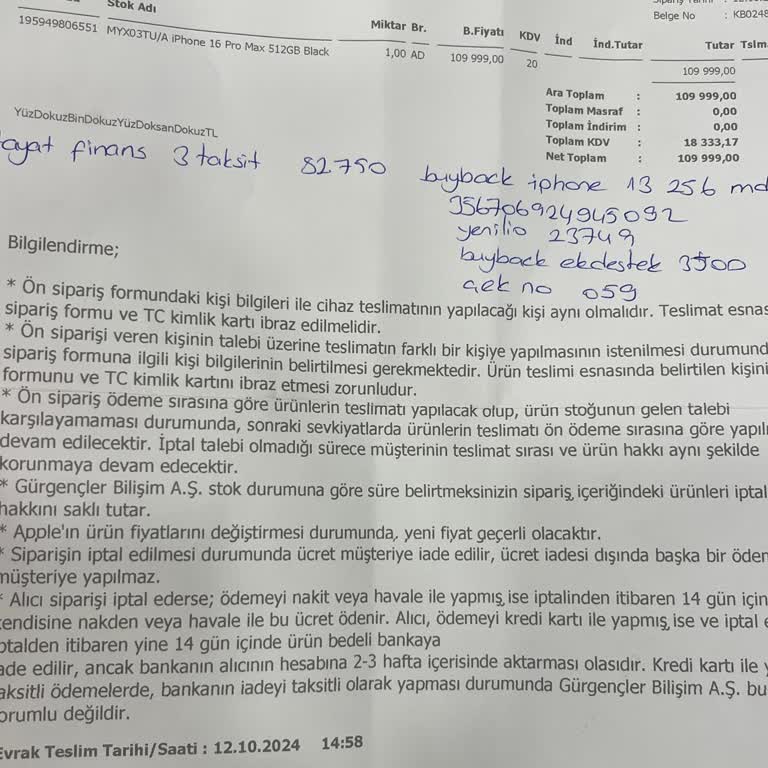 Stok Adı
Belge No : KB0248
Miktar Br. B.Fiyatı KDV İnd İnd.Tutar Tutar Tslm
195949806551 MYX03TU/A iPhone 16 Pro Max 512GB Black 1,00 AD 109 999,00 20 109 999,00
Ara Toplam : 109 999,00
Toplam Masraf : 0,00
Toplam İndirim : 0,00
Toplam KDV : 18 333,17
Net Toplam : 109 999,00
YüzDokuzBinDokuzYüzDoksanDokuzTL
ayat finans 3 taksit 82750
buyback iphone 13 256 md
356706924945092
yenilio 23749
buyback ekdestek 3500
çek no 059
Bilgilendirme;
* Ön sipariş formundaki kişi bilgileri ile cihaz teslimatının yapılacağı kişi aynı olmalıdır. Teslimat esnas
sipariş formu ve TC kimlik kartı ibraz edilmelidir.
* Ön siparişi veren kişinin talebi üzerine teslimatın farklı bir kişiye yapılmasının istenilmesi durumund
sipariş formuna ilgili kişi bilgilerinin belirtilmesi gerekmektedir. Ürün teslimi esnasında belirtilen kişini
formunu ve TC kimlik kartını ibraz etmesi zorunludur.
* Ön sipariş ödeme sırasına göre ürünlerin teslimatı yapılacak olup, ürün stoğunun gelen talebi
karşılayamaması durumunda, sonraki sevkiyatlarda ürünlerin teslimatı ön ödeme sırasına göre yapılı
devam edilecektir. İptal talebi olmadığı sürece müşterinin teslimat sırası ve ürün hakkı aynı şekilde
korunmaya devam edecektir.
* Gürgençler Bilişim A.Ş. stok durumuna göre süre belirtmeksinizin sipariş içeriğindeki ürünleri iptal
hakkını saklı tutar.
* Apple'ın ürün fiyatlarını değiştirmesi durumunda, yeni fiyat geçerli olacaktır.
* Siparişin iptal edilmesi durumunda ücret müşteriye iade edilir, ücret iadesi dışında başka bir öden
müşteriye yapılmaz.
* Alıcı siparişi iptal ederse; ödemeyi nakit veya havale ile yapmış ise iptalinden itibaren 14 gün için
kendisine nakden veya havale ile bu ücret ödenir. Alıcı, ödemeyi kredi kartı ile yapmış ise ve iptal e
ptalden itibaren yine 14 gün içinde ürün bedeli bankaya
ade edilir, ancak bankanın alıcının hesabına 2-3 hafta içerisinde aktarması olasıdır. Kredi kartı ile y
aksitli ödemelerde, bankanın iadeyi taksitli olarak yapması durumunda Gürgençler Bilişim A.Ş. bu
orumlu değildir.
Evrak Teslim Tarihi/Saati : 12.10.2024 14:58